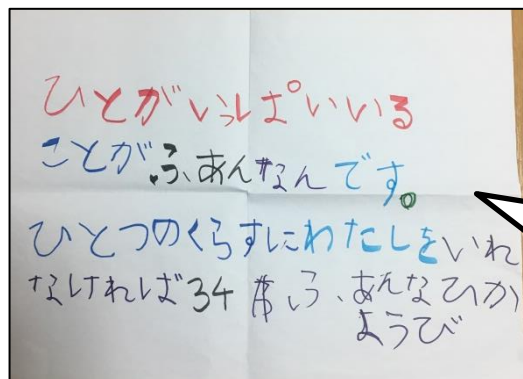 ひとがいっぱいいる
ことがふあんなんです。
ひとつのくらすにわたしをいれ
なければ34 ふあんなひか
ようび